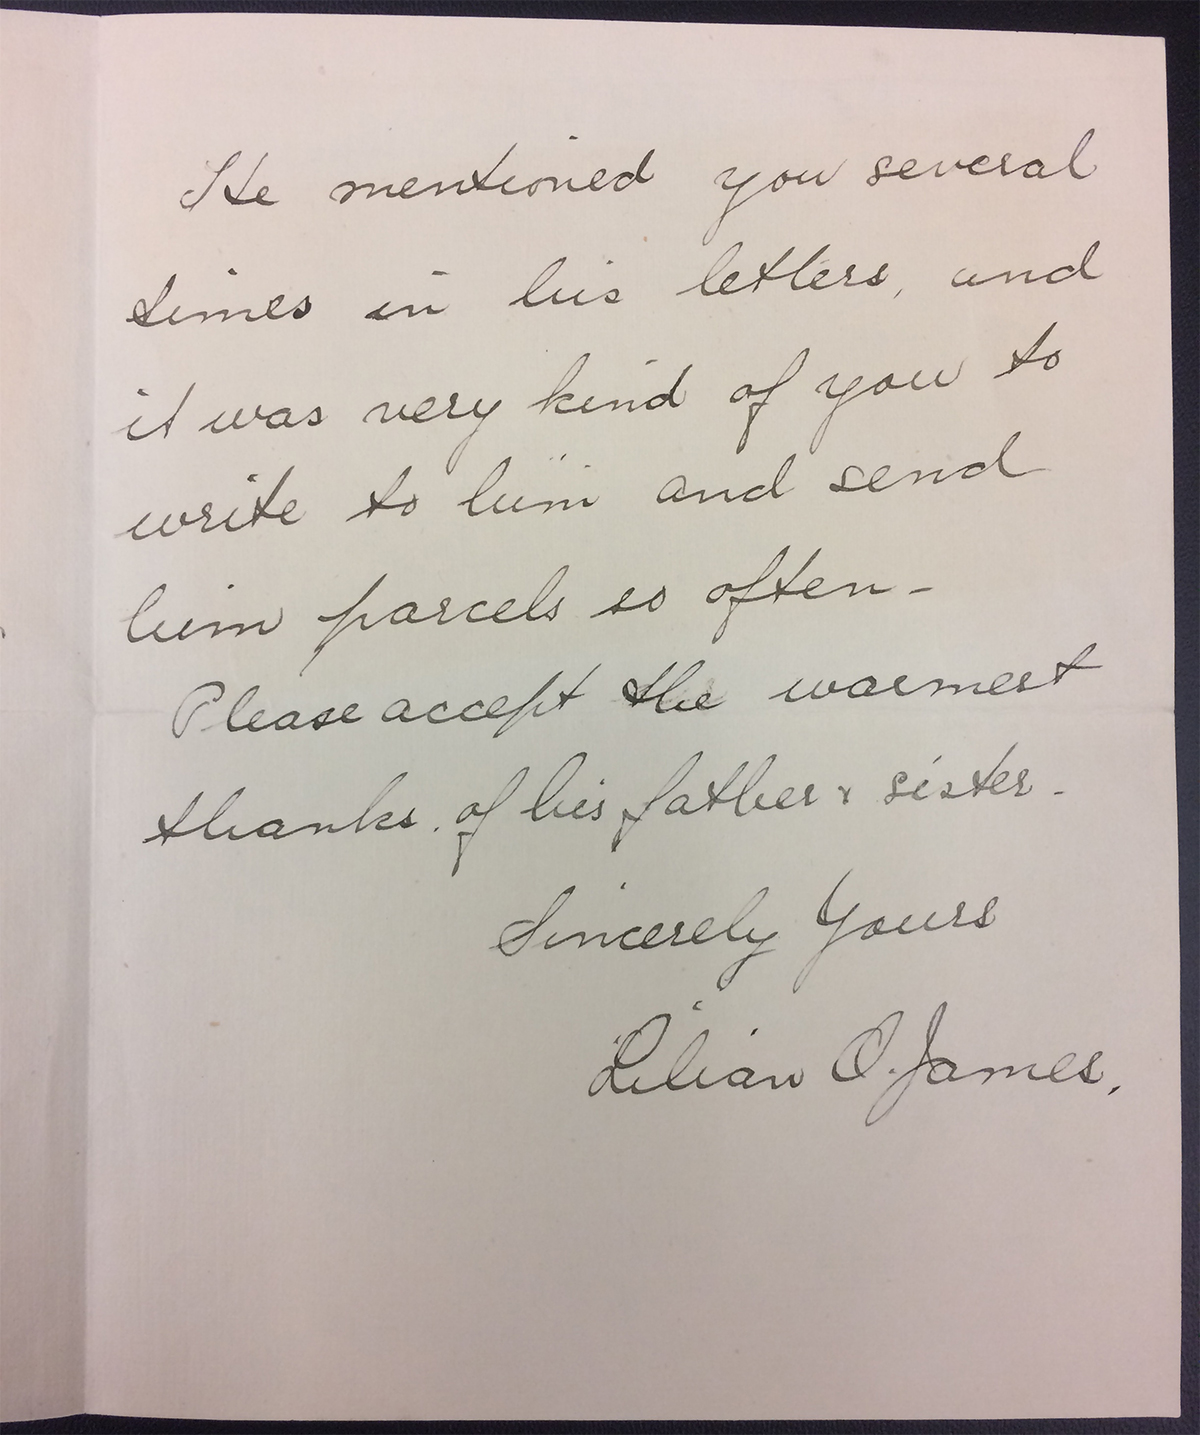 He mentioned you several
times in his letters, and
it was very kind of you to
write to him and send
him parcels so often -
Please accept the warmest
thanks. of his father & sister -
Sincerely Yours
Lilian O. James.